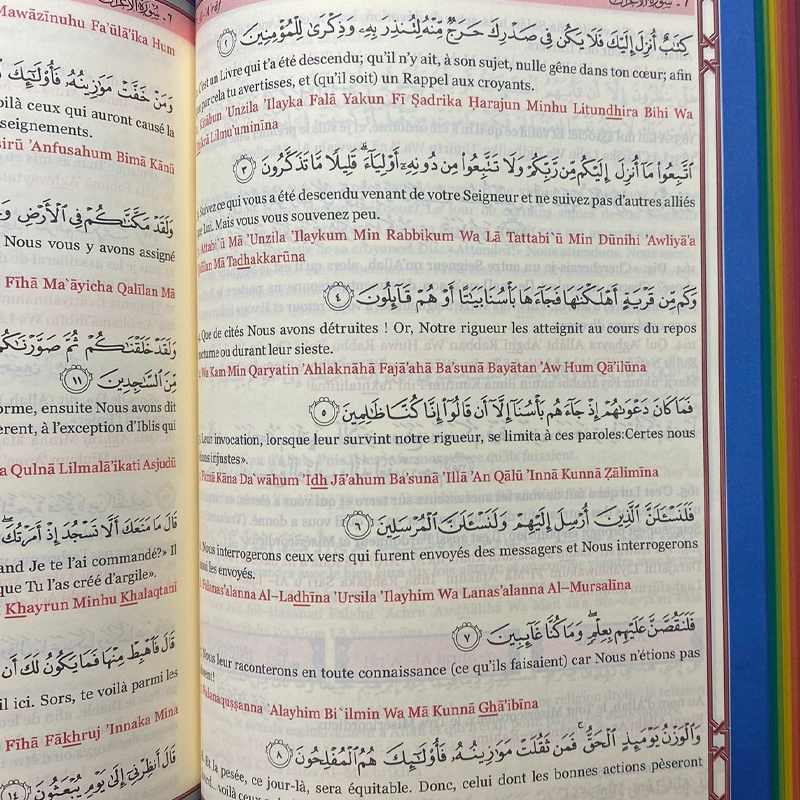 ٧ - سُورَةُ الأَعْرَاف
Mawāzīnuhu Fa'ūlā'ika Hum
وَمَنْ خَفَّتْ مَوَٰزِينُهُۥ فَأُو۟لَـٰٓئِكَ
voilà ceux qui auront causé la
seignements.
sirū 'Anfusahum Bimā Kānū
وَلَقَدْ مَكَّنَّـٰكُمْ فِى ٱلْأَرْضِ
Nous vous y avons assigné
Fīhā Ma`āyicha Qalīlan Mā
وَلَقَدْ خَلَقْنَـٰكُمْ ثُمَّ صَوَّرْنَـٰكُمْ
مِّنَ ٱلسَّـٰجِدِينَ ١١
orme, ensuite Nous avons dit
èrent, à l'exception d'Iblis qui
a Qulnā Lilmalā'ikati Asjudū
قَالَ مَا مَنَعَكَ أَلَّا تَسْجُدَ إِذْ أَمَرْتُكَ ۖ
and Je te l'ai commandé?» Il
que Tu l'as créé d'argile».
Khayrun Minhu Khalaqtani
قَالَ فَٱهْبِطْ مِنْهَا فَمَا يَكُونُ لَكَ أَن
il ici. Sors, te voilà parmi les
Fīhā Fākhruj 'Innaka Mina
قَالَ أَنظِرْنِىٓ إِلَىٰ يَوْمِ يُبْعَثُونَ ١٤
كِتَـٰبٌ أُنزِلَ إِلَيْكَ فَلَا يَكُن فِى صَدْرِكَ حَرَجٌ مِّنْهُ لِتُنذِرَ بِهِۦ وَذِكْرَىٰ لِلْمُؤْمِنِينَ ٢
C'est un Livre qui t'a été descendu; qu'il n'y ait, à son sujet, nulle gêne dans ton cœur; afin
par cela tu avertisses, et (qu'il soit) un Rappel aux croyants.
Kitābun 'Unzila 'Ilayka Falā Yakun Fī Şadrika Ĥarajun Minhu Litundhira Bihi Wa
Lilmu'uminīna
ٱتَّبِعُوا۟ مَآ أُنزِلَ إِلَيْكُم مِّن رَّبِّكُمْ وَلَا تَتَّبِعُوا۟ مِن دُونِهِۦٓ أَوْلِيَآءَ ۗ قَلِيلًا مَّا تَذَكَّرُونَ ٣
Suivez ce qui vous a été descendu venant de votre Seigneur et ne suivez pas d'autres alliés
que Lui. Mais vous vous souvenez peu.
Attabi`ū Mā 'Unzila 'Ilaykum Min Rabbikum Wa Lā Tattabi`ū Min Dūnihi 'Awliyā'a
Qalīlan Mā Tadhakkarūna
وَكَم مِّن قَرْيَةٍ أَهْلَكْنَـٰهَا فَجَآءَهَا بَأْسُنَا بَيَـٰتًا أَوْ هُمْ قَآئِلُونَ ٤
Que de cités Nous avons détruites ! Or, Notre rigueur les atteignit au cours du repos
nocturne ou durant leur sieste.
Wa Kam Min Qaryatin 'Ahlaknāhā Fajā'ahā Ba'sunā Bayātan 'Aw Hum Qā'ilūna
فَمَا كَانَ دَعْوَىٰهُمْ إِذْ جَآءَهُم بَأْسُنَآ إِلَّآ أَن قَالُوٓا۟ إِنَّا كُنَّا ظَـٰلِمِينَ ٥
Leur invocation, lorsque leur survint notre rigueur, se limita à ces paroles:Certes nous
étions injustes».
Famā Kāna Da`wāhum 'Idh Jā'ahum Ba'sunā 'Illā 'An Qālū 'Innā Kunnā Žālimīna
فَلَنَسْـَٔلَنَّ ٱلَّذِينَ أُرْسِلَ إِلَيْهِمْ وَلَنَسْـَٔلَنَّ ٱلْمُرْسَلِينَ ٦
Nous interrogerons ceux vers qui furent envoyés des messagers et Nous interrogerons
aussi les envoyés.
Falanas'alanna Al–Ladhīna 'Ursila 'Ilayhim Wa Lanas'alanna Al–Mursalīna
فَلَنَقُصَّنَّ عَلَيْهِم بِعِلْمٍ ۖ وَمَا كُنَّا غَآئِبِينَ ٧
Nous leur raconterons en toute connaissance (ce qu'ils faisaient) car Nous n'étions pas
Falanaquşşanna `Alayhim Bi`ilmin Wa Mā Kunnā Ghā'ibīna
وَٱلْوَزْنُ يَوْمَئِذٍ ٱلْحَقُّ ۚ فَمَن ثَقُلَتْ مَوَٰزِينُهُۥ فَأُو۟لَـٰٓئِكَ هُمُ ٱلْمُفْلِحُونَ ٨
Et la pesée, ce jour-là, sera équitable. Donc, celui dont les bonnes actions pèseront